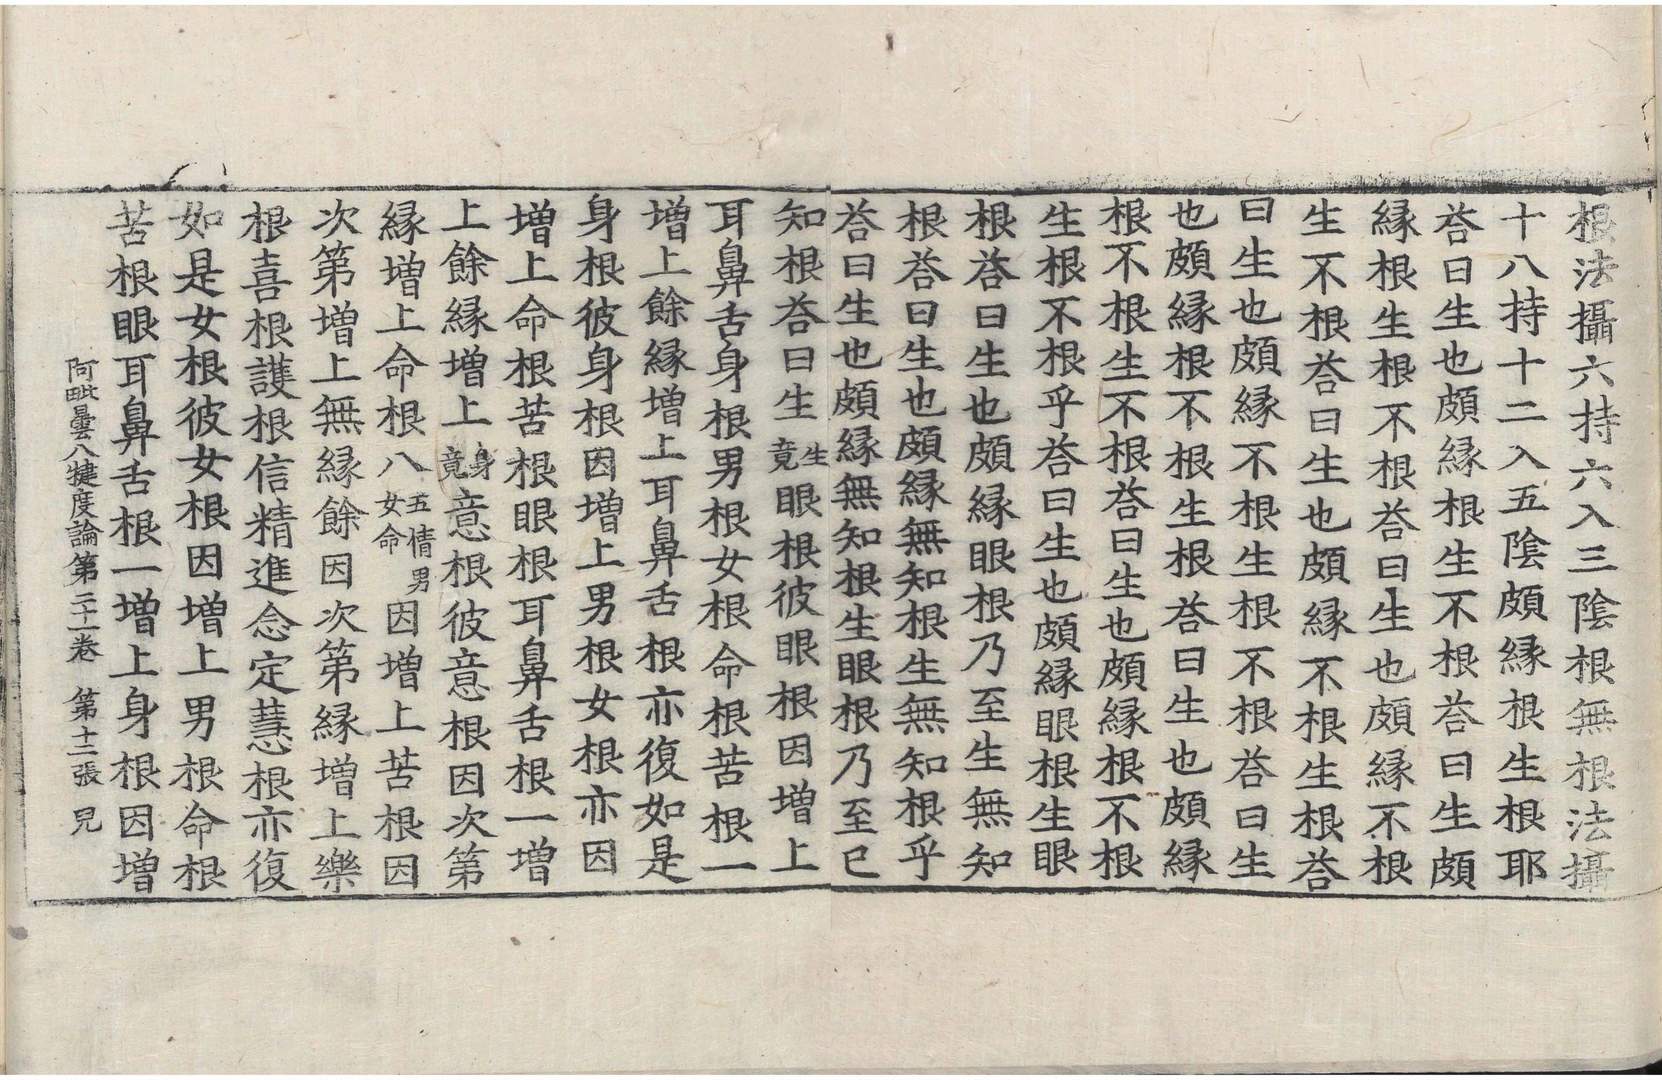 根法攝六持六入三陰根無根法攝
十八持十二入五陰頗縁根生根耶
荅曰生也頗縁根生不根荅曰生頗
縁根生根不根荅曰生也頗縁不根
生不根荅曰生也頗縁不根生根荅
曰生也頗縁不根生根不根荅曰生
也頗縁根不根生根荅曰生也頗縁
根不根生不根荅曰生也頗縁根不根
生根不根乎荅曰生也頗縁眼根生眼
根荅曰生也頗縁眼根乃至生無知
根荅曰生也頗縁無知根生無知根乎
荅曰生也頗縁無知根生眼根乃至已
知根荅曰生生竟眼根彼眼根因增上
耳鼻舌身根男根女根命根苦根一
增上餘縁增上耳鼻舌根亦復如是
身根彼身根因增上男根女根亦因
增上命根苦根眼根耳鼻舌根一增
上餘縁增上身竟意根彼意根因次第
縁增上命根八五情男女命因增上苦根因
次第增上無縁餘因次第縁增上樂
根喜根護根信精進念定慧根亦復
如是女根彼女根因增上男根命根
苦根眼耳鼻舌根一增上身根因增
阿毗曇八犍度論第二十一卷　第十二張　皃